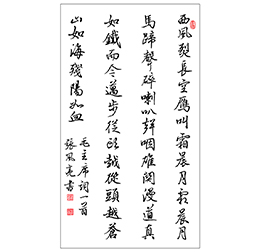 西風烈長空鴈叫霜晨月霜晨月
馬蹄聲碎喇叭聲咽雄關漫道真
如鐵而今邁步從頭越從頭越蒼
山如海殘陽如血
毛主席詞一首
張風亮書